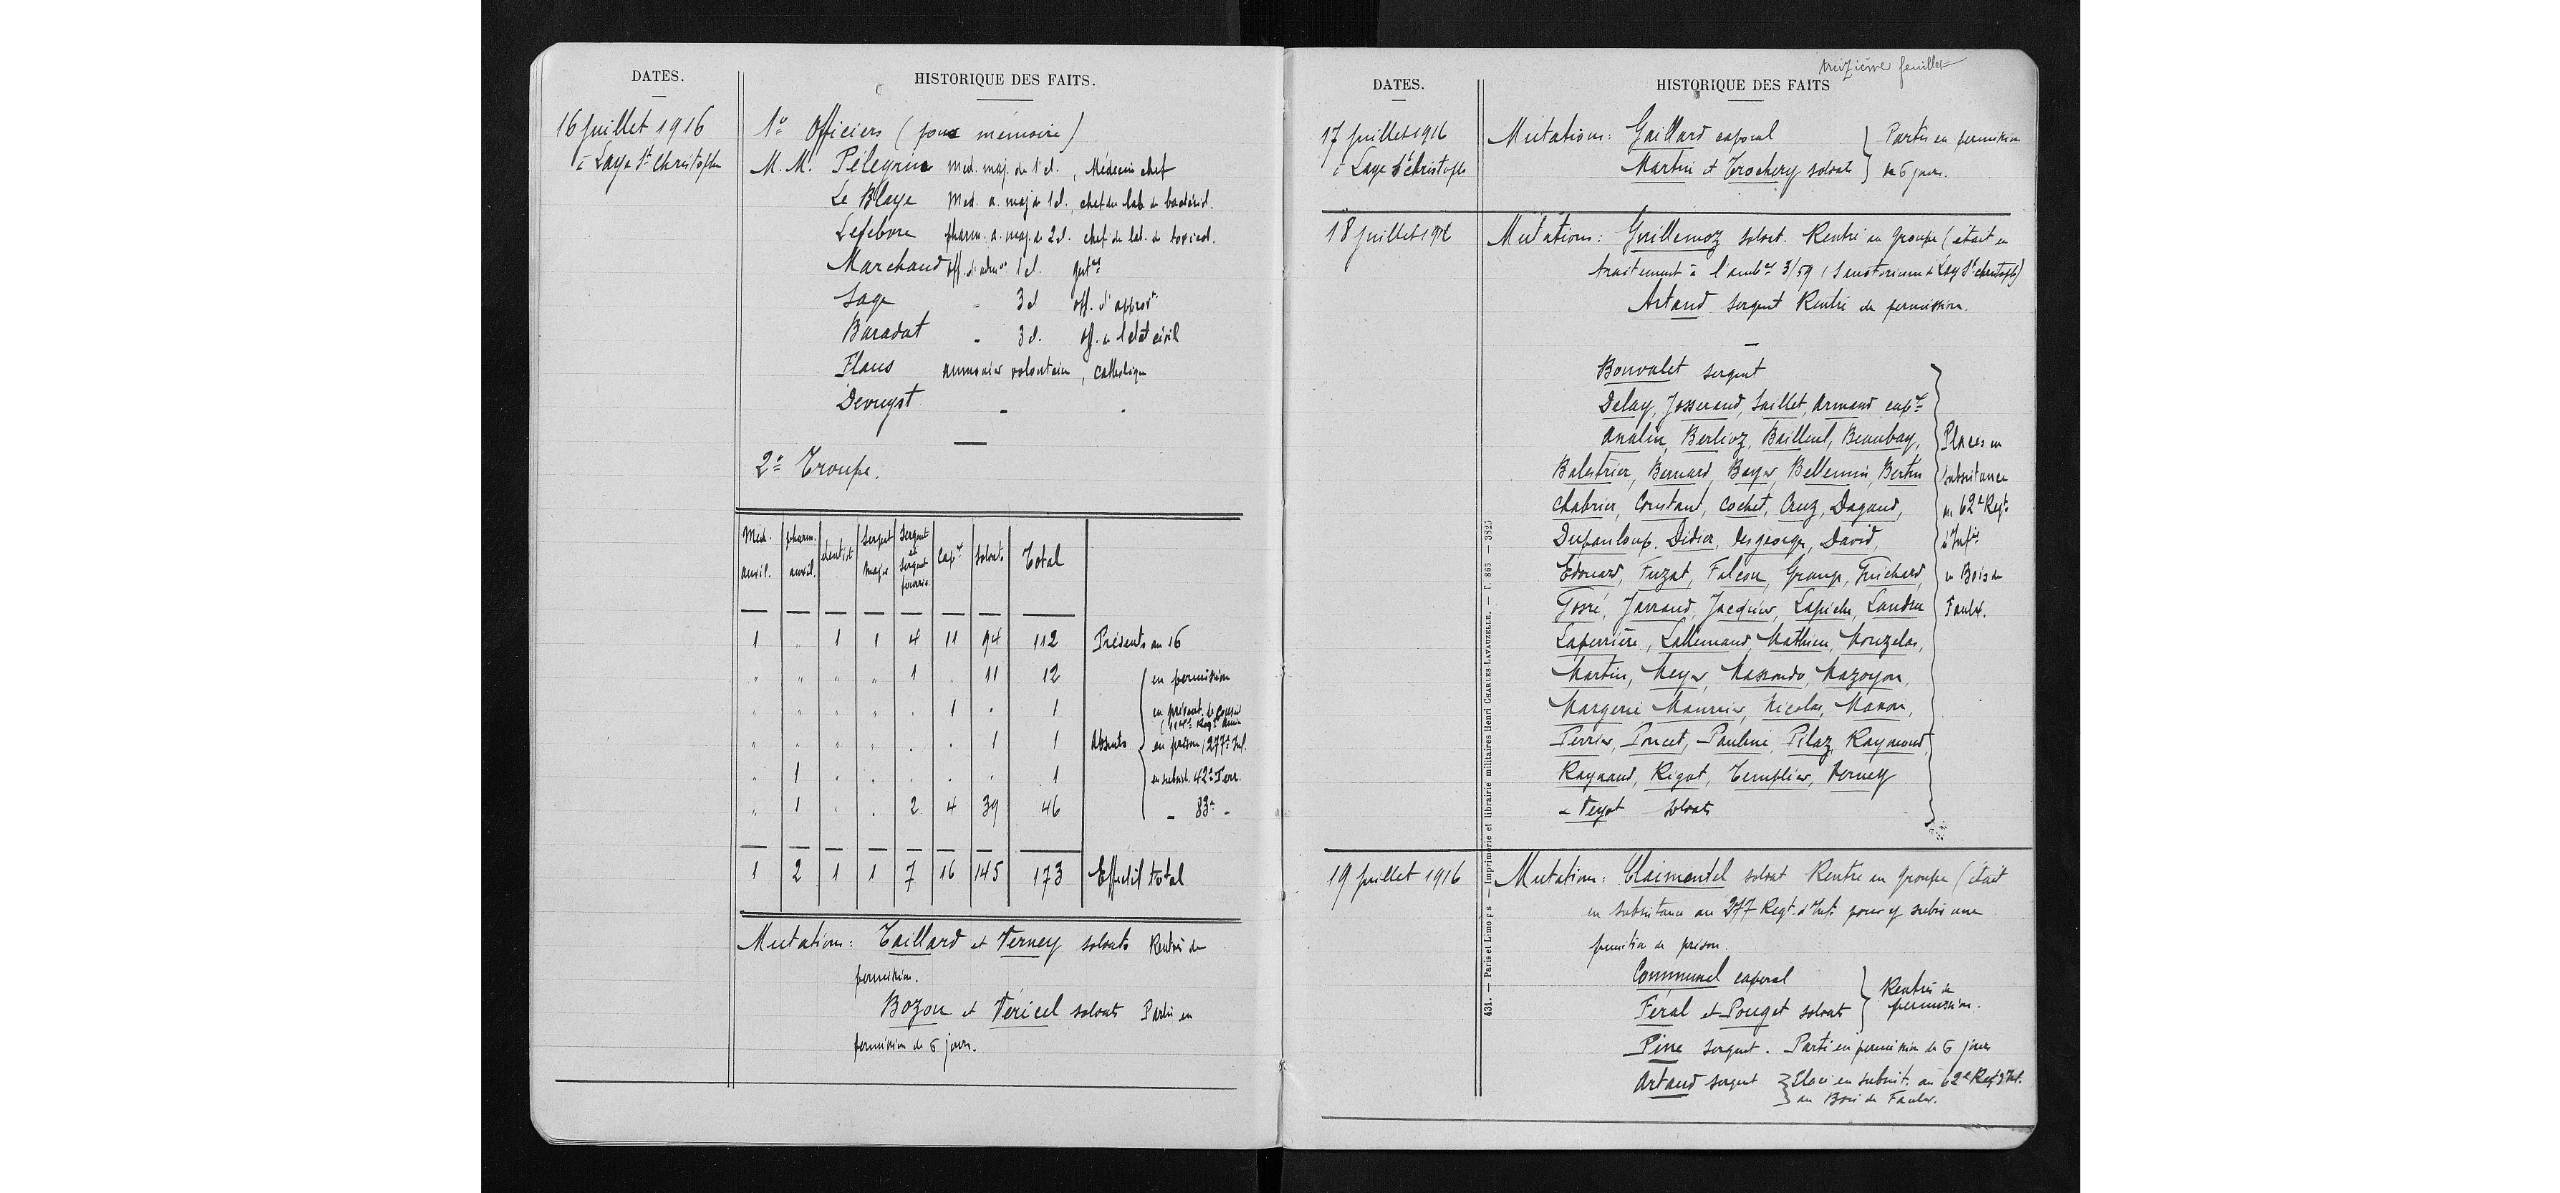 DATES.
HISTORIQUE DES FAITS.
16 Juillet 1916
à Laye St Christophe
1° Officiers (pour mémoire)
M.M. Pélegrin Méd. maj. de 1e cl., Médecin chef
Le Blaye Méd. a. maj de 1 cl. chef du lab. de bactériol.
Lefebvre pharm. a. maj. de 2 cl. chef du lab. de toxicol.
Marchand off. d'admon 1 cl. gest.
Sage - 3 cl off. d'approt
Baradat - 3 cl. off. de l'état civil
Flaus aumonier volontaire, catholique
Devuyst - .
2° Troupe.
Méd. auxil. | pharm. auxil. | dentist | Sergent Major | Sergent et sergent fourrier | Capx | Soldats | Total
1 " 1 1 4 11 94 112 Présents au 16
" " " " 1 . 11 12 en permission
" " " " . 1 . 1 en
" " " " . . 1 1 Absents en prison (277e Inf.
" 1 " . . . . 1 en subsist. 42e Terr.
" 1 " . 2 4 39 46 - 83e -
1 2 1 1 7 16 145 173 Effectif total
Mutations: Taillard et Verney soldats Rentrés de
permission.
Bozon et Vericel soldats Partis en
permission de 6 jours.
treizième feuillet
DATES.
HISTORIQUE DES FAITS
17 Juillet 1916
à Laye St Christophe
Mutations: Gaillard caporal
Martin et Trochery soldats
Partis en permission
de 6 jours.
18 Juillet 1916
Mutations: Guillemoz soldat. Rentré au groupe (était en
traitement à l'ambce 3/59 (Sanatorium de Lay St Christophe)
Artaud sergent Rentré de permission.
Bouvalet sergent
Delay, Josserand, Saillet, Armand capx
Analin, Berlioz, Bailleul, Beaubay,
Balestrier, Bernard, Boyer, Bellemin, Bertin
Chabrier, Constant, Cochet, Cruz, Dagand,
Dupanloup, Didier, Desgeorges, David,
Edouard, Fuzat, Falcon, Grange, Guichard,
Gosré, Jarraud, Jacquier, Lapiche, Landru
Laperrière, Lallemand, Mathieu, Mouzelas,
Martin, Meyer, Massondo, Mazoyon,
Margerie Meunier, Nicolas, Manon,
Perrier, Poncet, Pauline, Pilaz, Raymond,
Raynaud, Rigot, Templier, Verney
et Veyst soldats
Placés en
subsistance
au 62e Regt
d'Infie
au Bois de
Faulx.
19 Juillet 1916
Mutations: Claimentel soldat Rentré au groupe (était
en subsistance au 277 Regt. d'Inf. pour y subir une
punition de prison.
Communel caporal
Feral et Pouget soldats
Rentrés de
permission.
Pirre sergent. Parti en permission de 6 jours
Artaud sergent Placé en subsist. au 62e Regt d'Inf.
au Bois de Faulx.
431. — Paris et Limoges. — Imprimerie et librairie militaires Henri CHARLES-LAVAUZELLE. — F. 865 — 3825